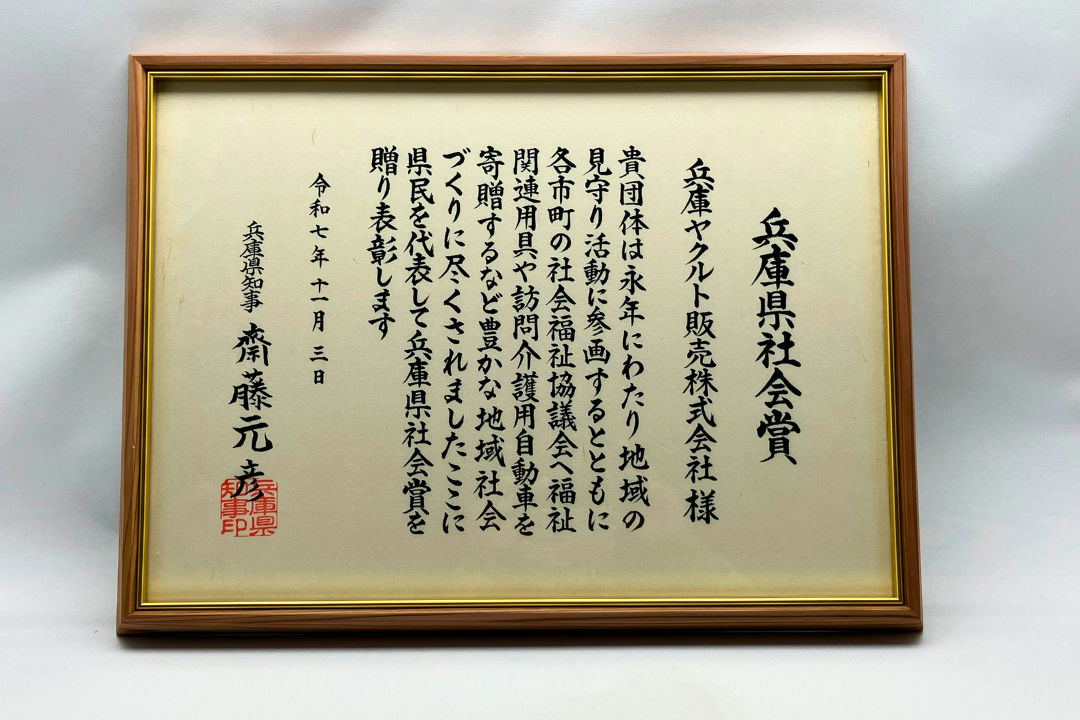 兵庫県社会賞
兵庫ヤクルト販売株式会社 様
貴団体は永年にわたり地域の
見守り活動に参画するとともに
各市町の社会福祉協議会へ福祉
関連用具や訪問介護用自動車を
寄贈するなど豊かな地域社会
づくりに尽くされましたここに
県民を代表して兵庫県社会賞を
贈り表彰します
令和七年十一月三日
兵庫県知事 齋藤元彦
兵庫県
知事印